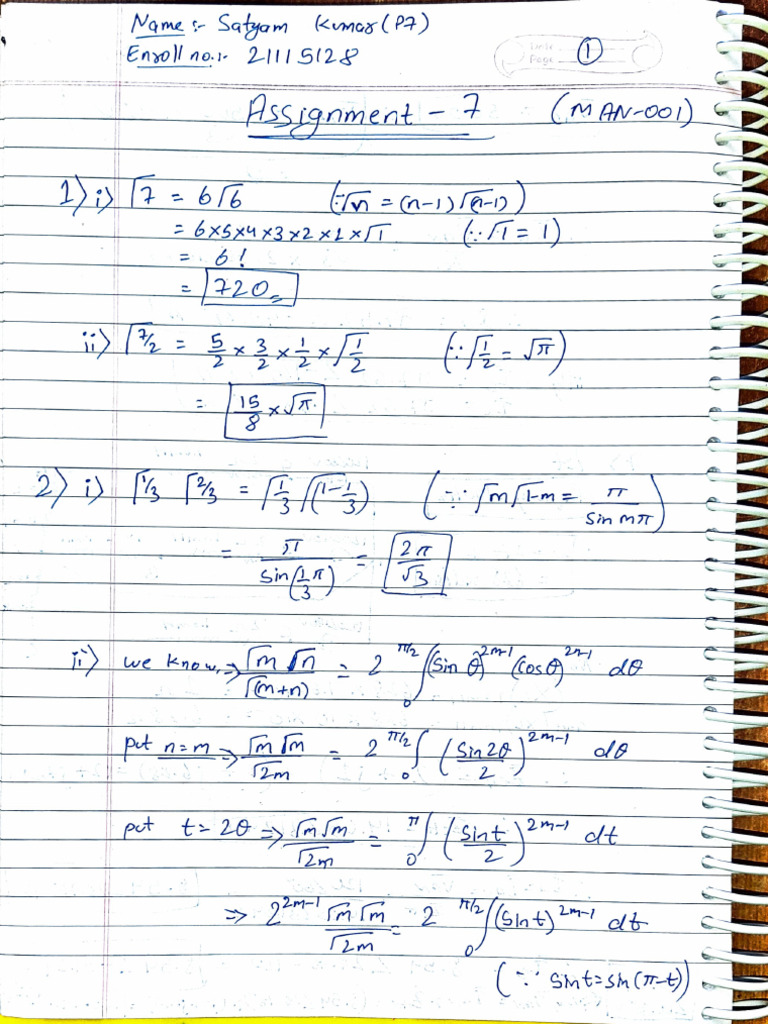 Name:- Satyam Kumar (P7)
Enroll no.:- 21115128
Date
Page 1
Assignment - 7 (MAN-001)
1) i) Γ7 = 6Γ6 (∵Γn = (n-1)Γ(n-1))
= 6×5×4×3×2×1×Γ1 (∵Γ1 = 1)
= 6!
= 720
ii) Γ7/2 = 5/2 × 3/2 × 1/2 × Γ1/2 (∵Γ1/2 = √π)
= 15/8 × √π
2) i) Γ1/3 Γ2/3 = Γ1/3 Γ(1-1/3) (∵ Γm Γ1-m = π/sin mπ)
= π/sin(1/3 π) = 2π/√3
ii) we know, → Γm Γn/Γ(m+n) = 2 ∫₀^(π/2) (sin θ)^(2m-1) (cosθ)^(2n-1) dθ
put n=m → Γm Γm/Γ2m = 2 ∫₀^(π/2) (sin2θ/2)^(2m-1) dθ
put t = 2θ ⇒ Γm Γm/Γ2m = ∫₀^π (sint/2)^(2m-1) dt
⇒ 2^(2m-1) Γm Γm/Γ2m = 2 ∫₀^(π/2) (sint)^(2m-1) dt
(∵ sint = sin(π-t))